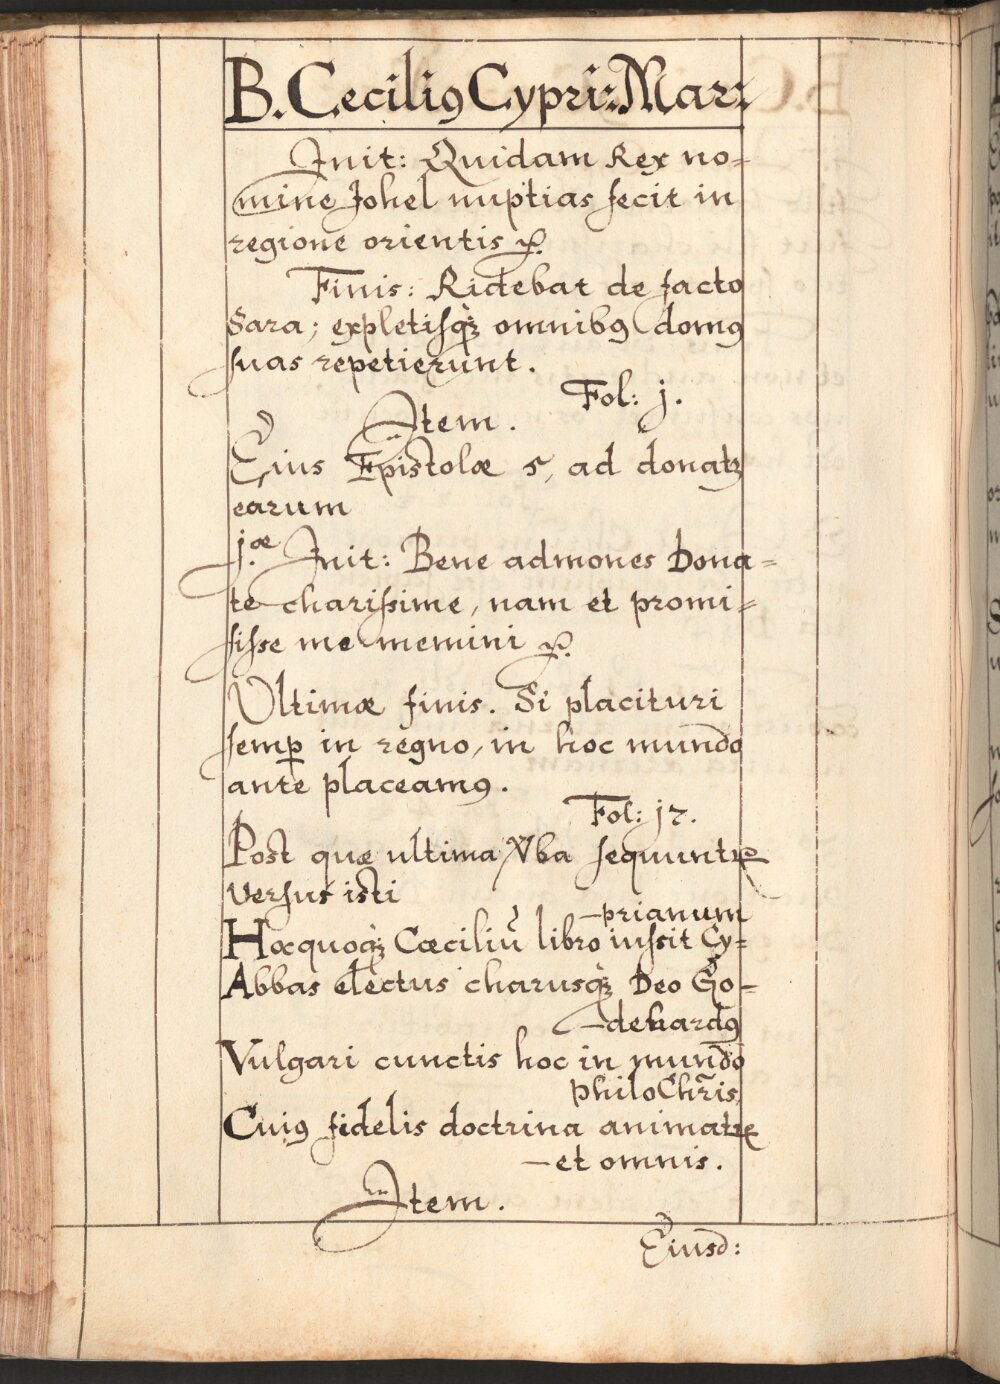 B. Cecili9 Cypri: Mar:
Init: Quidam Rex no=
mine Johel nuptias fecit in
regione orientis
Finis: Ridebat de facto
Sara; expletisq; omnib9 dom9
suas repetierunt.
Fol: j.
Item.
Eius Epistolæ 5, ad donatz
earum
j.æ Init: Bene admones Dona=
te charißime, nam et promi=
sisse me memini
Ultimæ finis. Si placituri
semp in regno, in hoc mundo
ante placeam9.
Fol: 17.
Post quæ ultima Vba sequuntr
versus isti
–prianum
Hocquoq; Cæciliū libro iussit Cy=
Abbas electus charusq; Deo Go-
–dehard9
Vulgari cunctis hoc in mundo
philoChr̃is,
Cui9 fidelis doctrina animatr
–et omnis.
Item.
Eiusd: